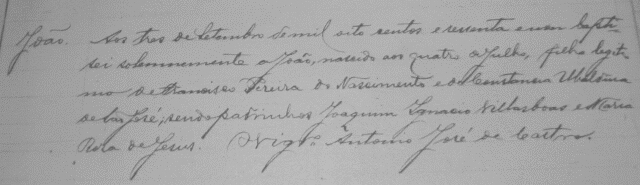 João. Aos tres de Setembro de mil oito centos e sessenta e um bapti-
sei solemnemente a João, nascido aos quatro de Julho, filho legiti-
mo, de Francisco Pereira do Nascimento e de Constancia Ubaldina
de São José; sendo padrinhos Joaquim Ignacio Villasboas e Maria
Rosa de Jesus. O Vigrº Antonio José de Castro.